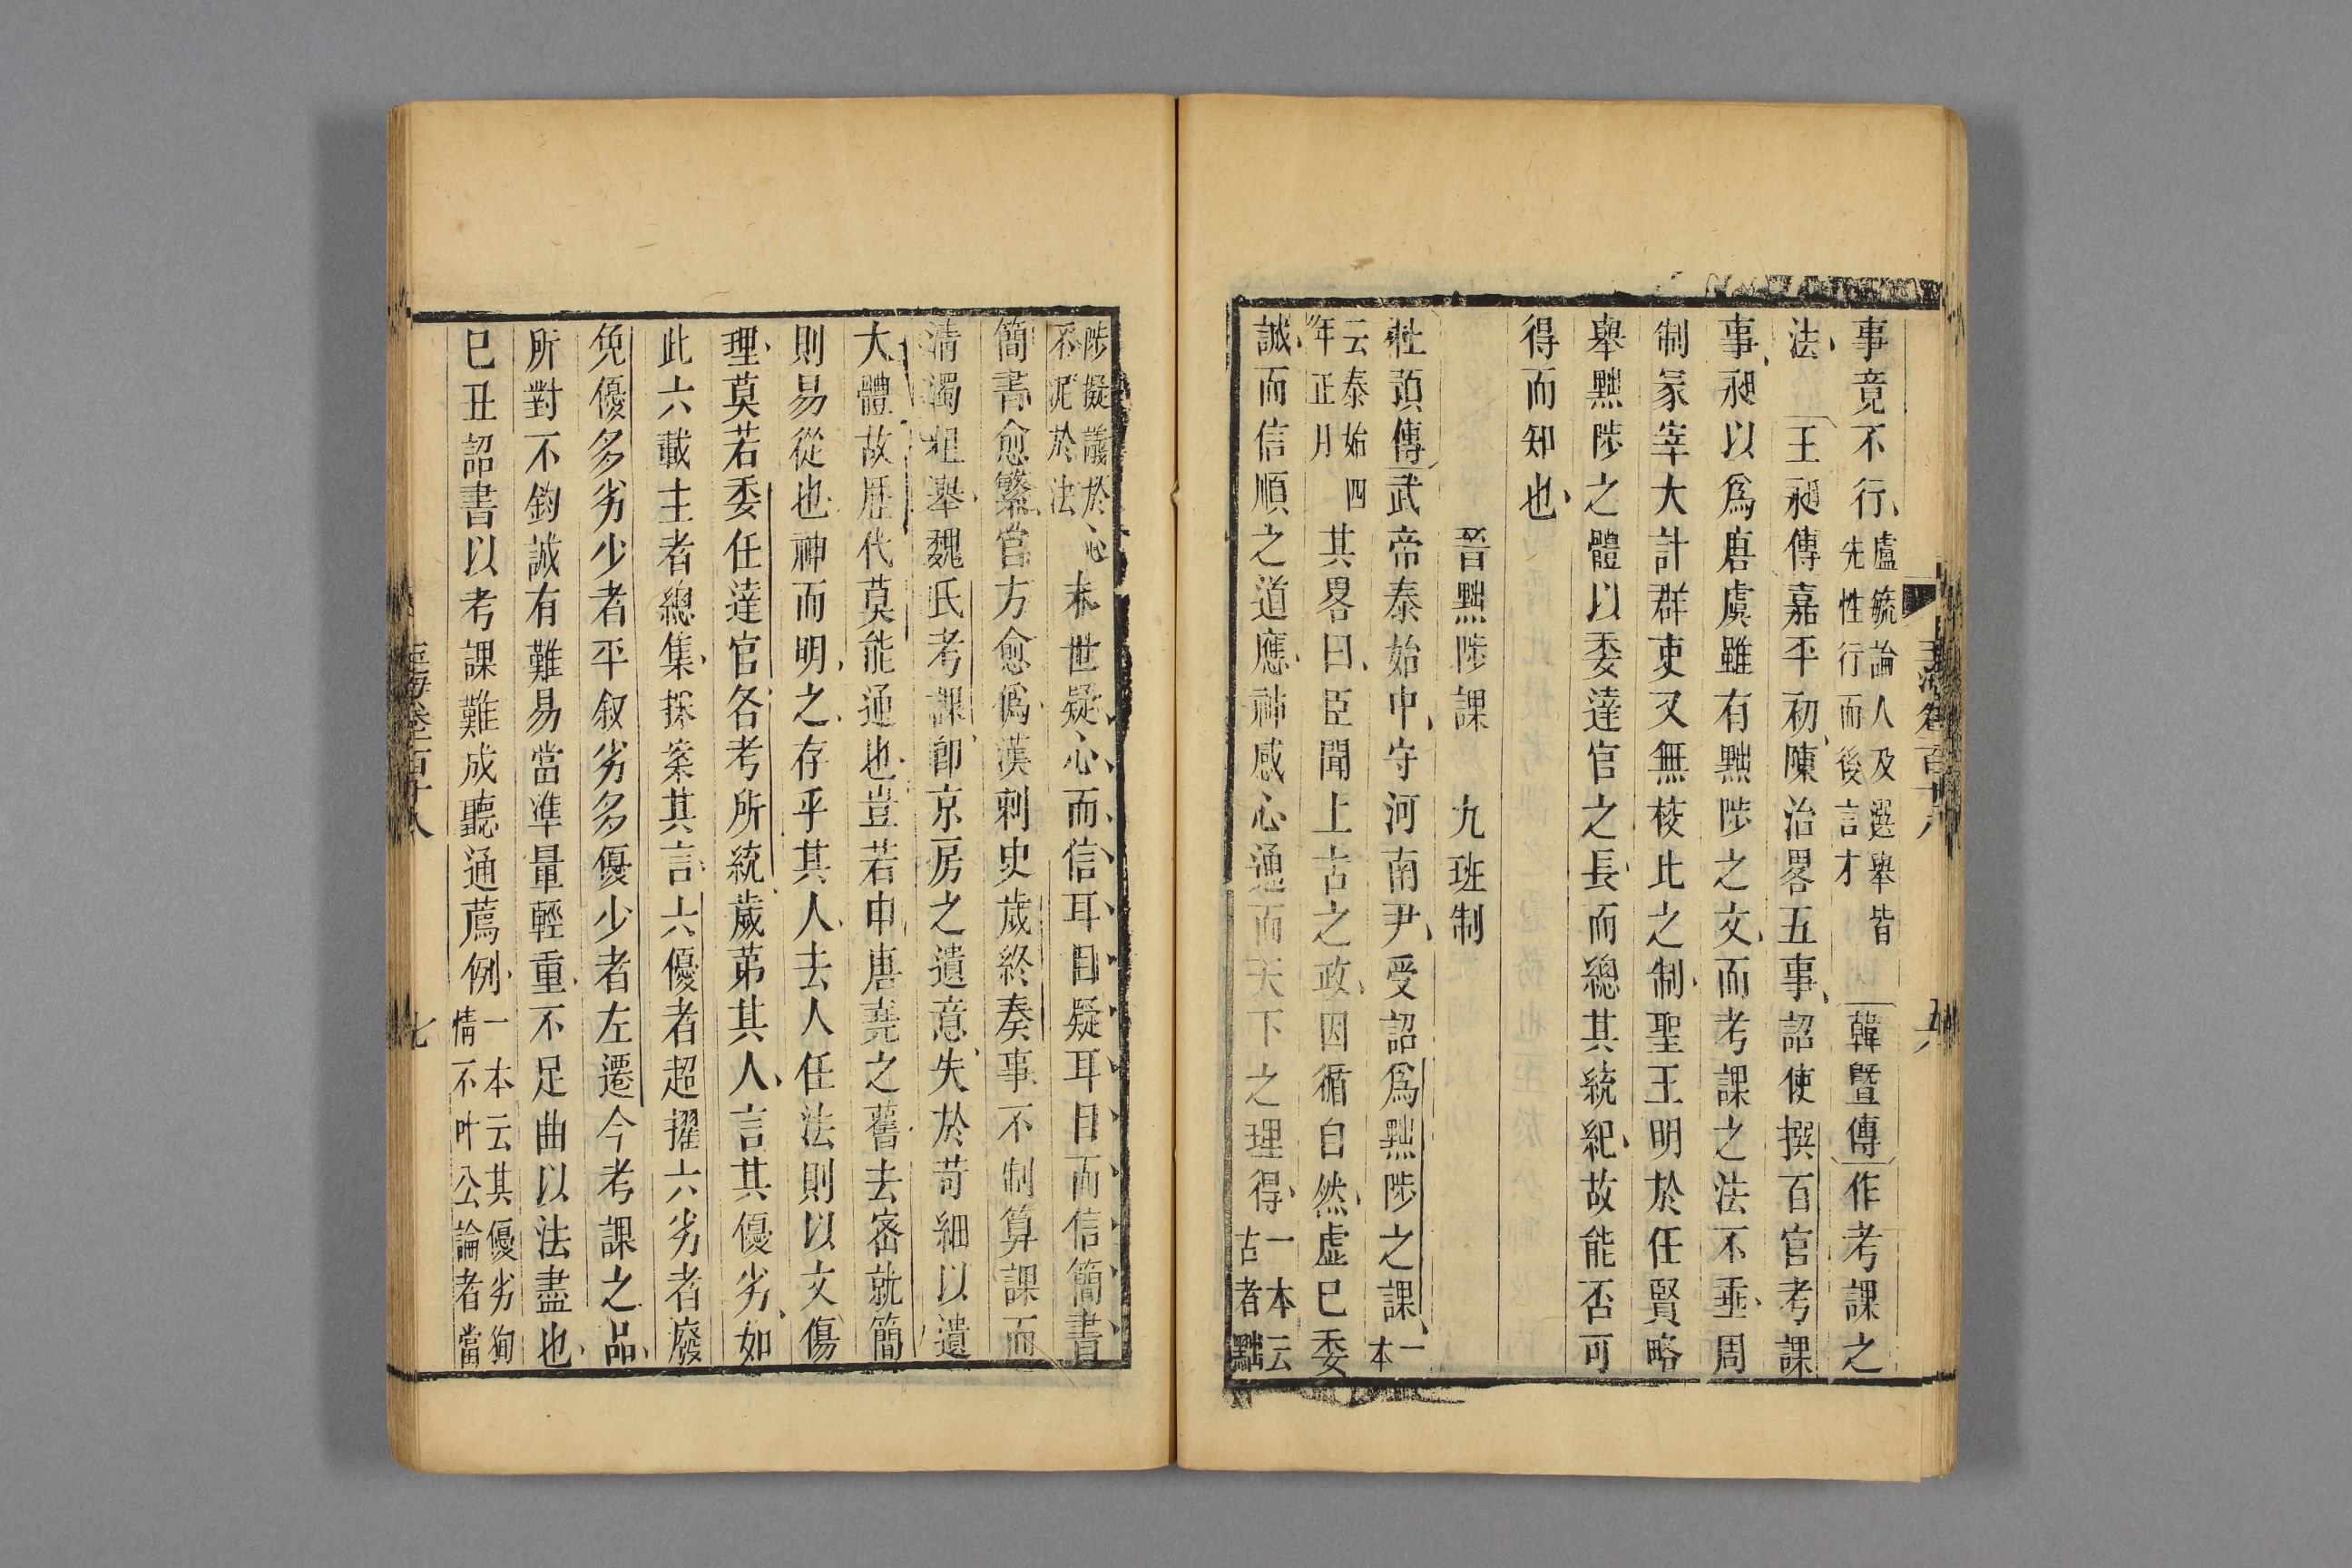 事竟不行盧毓論人及選舉皆先性行而後言才韓暨傳作考課之
法　王昶傳嘉平初陳治畧五事詔使撰百官考課
事昶以爲唐虞雖有黜陟之文而考課之法不垂周
制冢宰大計群吏又無校比之制聖王明於任賢略
舉黜陟之體以委達官之長而總其統紀故能否可
得而知也
晉黜陟課　九班制
杜預傳武帝泰始中守河南尹受詔爲黜陟之課一本
云泰始四年正月其畧曰臣聞上古之政因循自然虚巳委
誠而信順之道應神感心通而天下之理得一本云古者黜
陟擬議於心不泥於法末世疑心而信耳目疑耳目而信簡書
簡書愈繁官方愈僞漢刺史歲終奏事不制算課而
清濁粗舉魏氏考課卽京房之遺意失於苛細以違
大體故歷代莫能通也豈若申唐堯之舊去密就簡
則易從也神而明之存乎其人去人任法則以文傷
理莫若委任達官各考所統歲第其人言其優劣如
此六載主者總集採案其言六優者超擢六劣者廢
免優多劣少者平叙劣多優少者左遷今考課之品
所對不鈞誠有難易當準量輕重不足曲以法盡也
巳丑詔書以考課難成聽通薦例一本云其優劣徇情不叶公論者當
玉海卷百十八
七